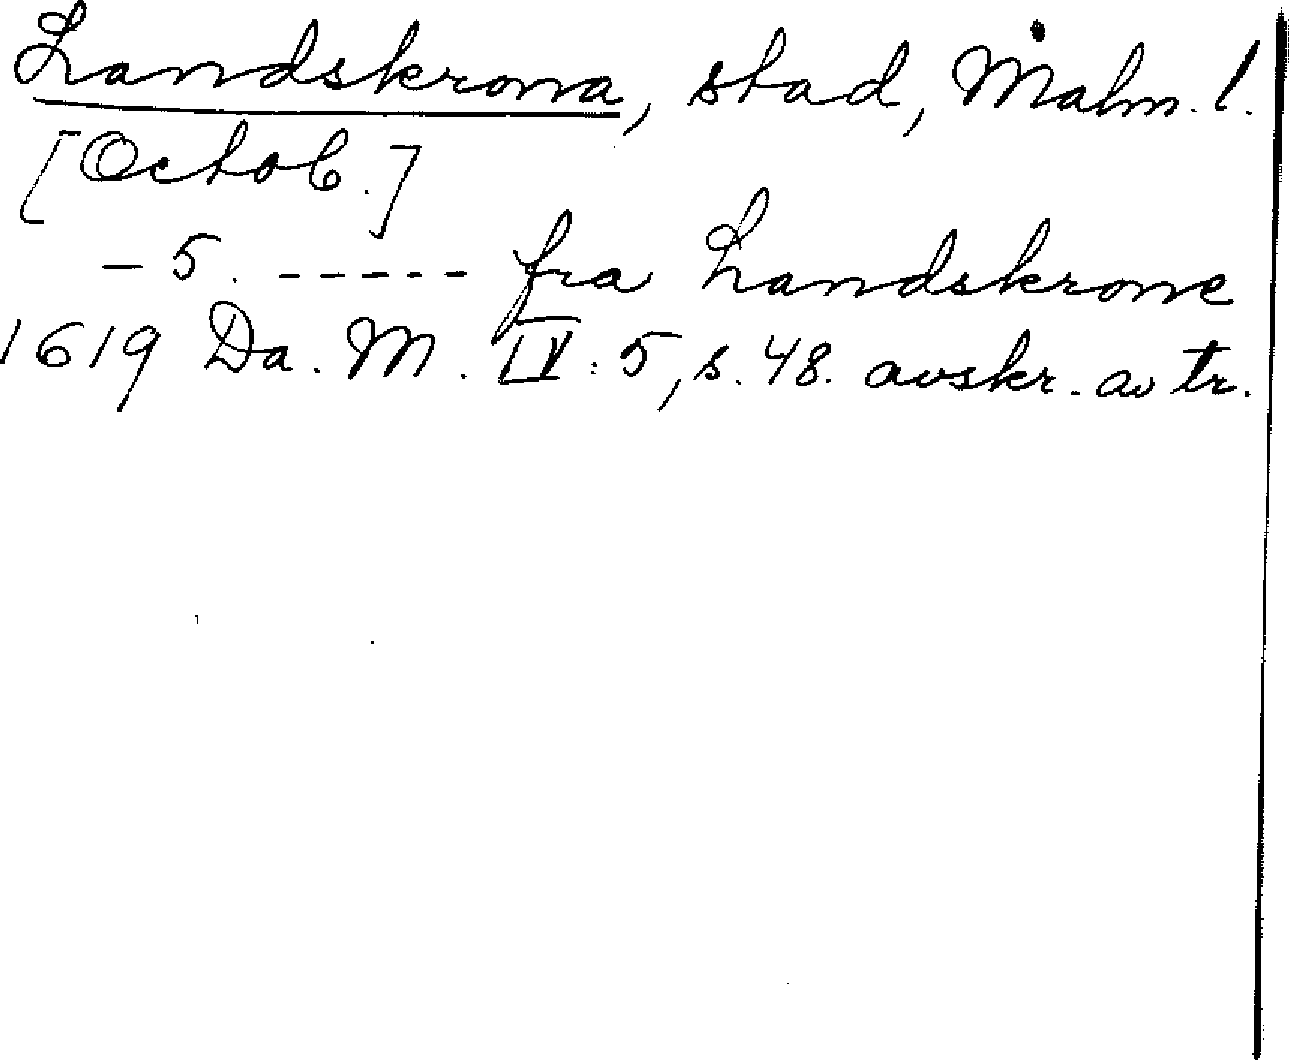 Landskrona, stad, Malm. l.
[Octob.]
- 5. ----- fra Landskrone
1619 Da. M. IV: 5, s. 48. avskr. av tr.